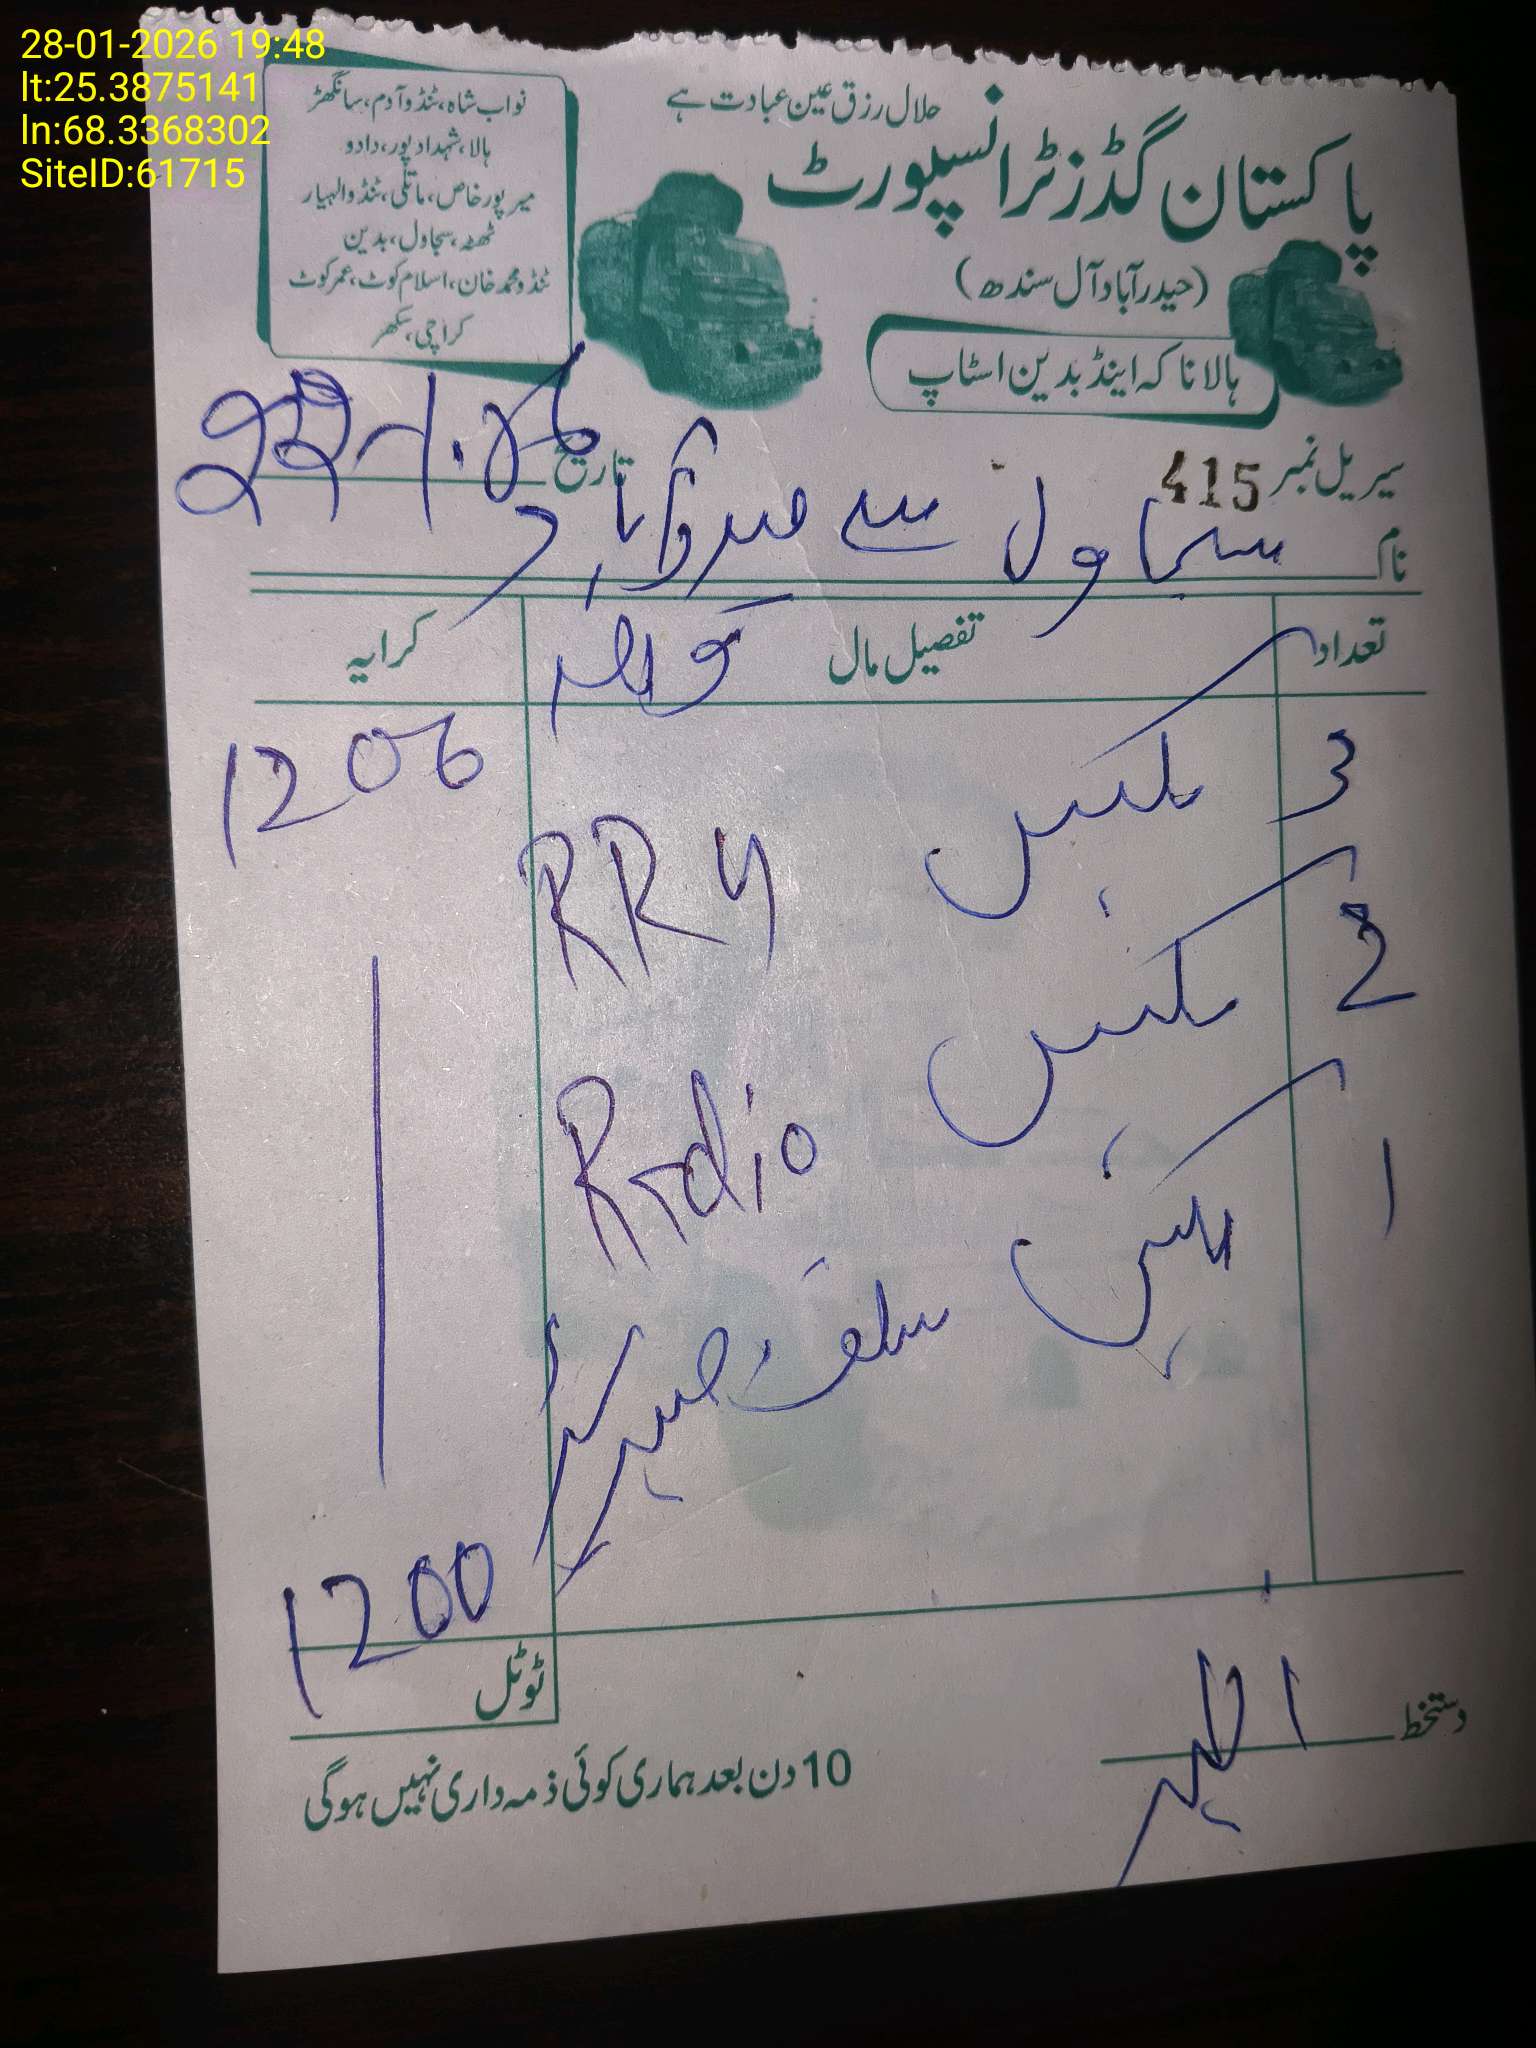 28-01-2026 19:48
lt:25.3875141
ln:68.3368302
SiteID:61715
حلال رزق عین عبادت ہے
پاکستان گڈز ٹرانسپورٹ
(حیدرآباد آل سندھ)
ہالا ناکہ اینڈ بدین اسٹاپ
نواب شاہ، ٹنڈو آدم، سانگھڑ
ہالا، شہداد پور، دادو
میر پور خاص، ماتلی، ٹنڈوالہیار
ٹھٹھہ، سجاول، بدین
ٹنڈو محمد خان، اسلام کوٹ، عمر کوٹ
کراچی، سکھر
سیریل نمبر 415
تاریخ
نام سجاول سے حیدرآباد
تعداد تفصیل مال کرایہ
3 بکس RRU 1200
2 بکس Radio
1 بکس
ٹوٹل 1200
دستخط
10 دن بعد ہماری کوئی ذمہ داری نہیں ہوگی